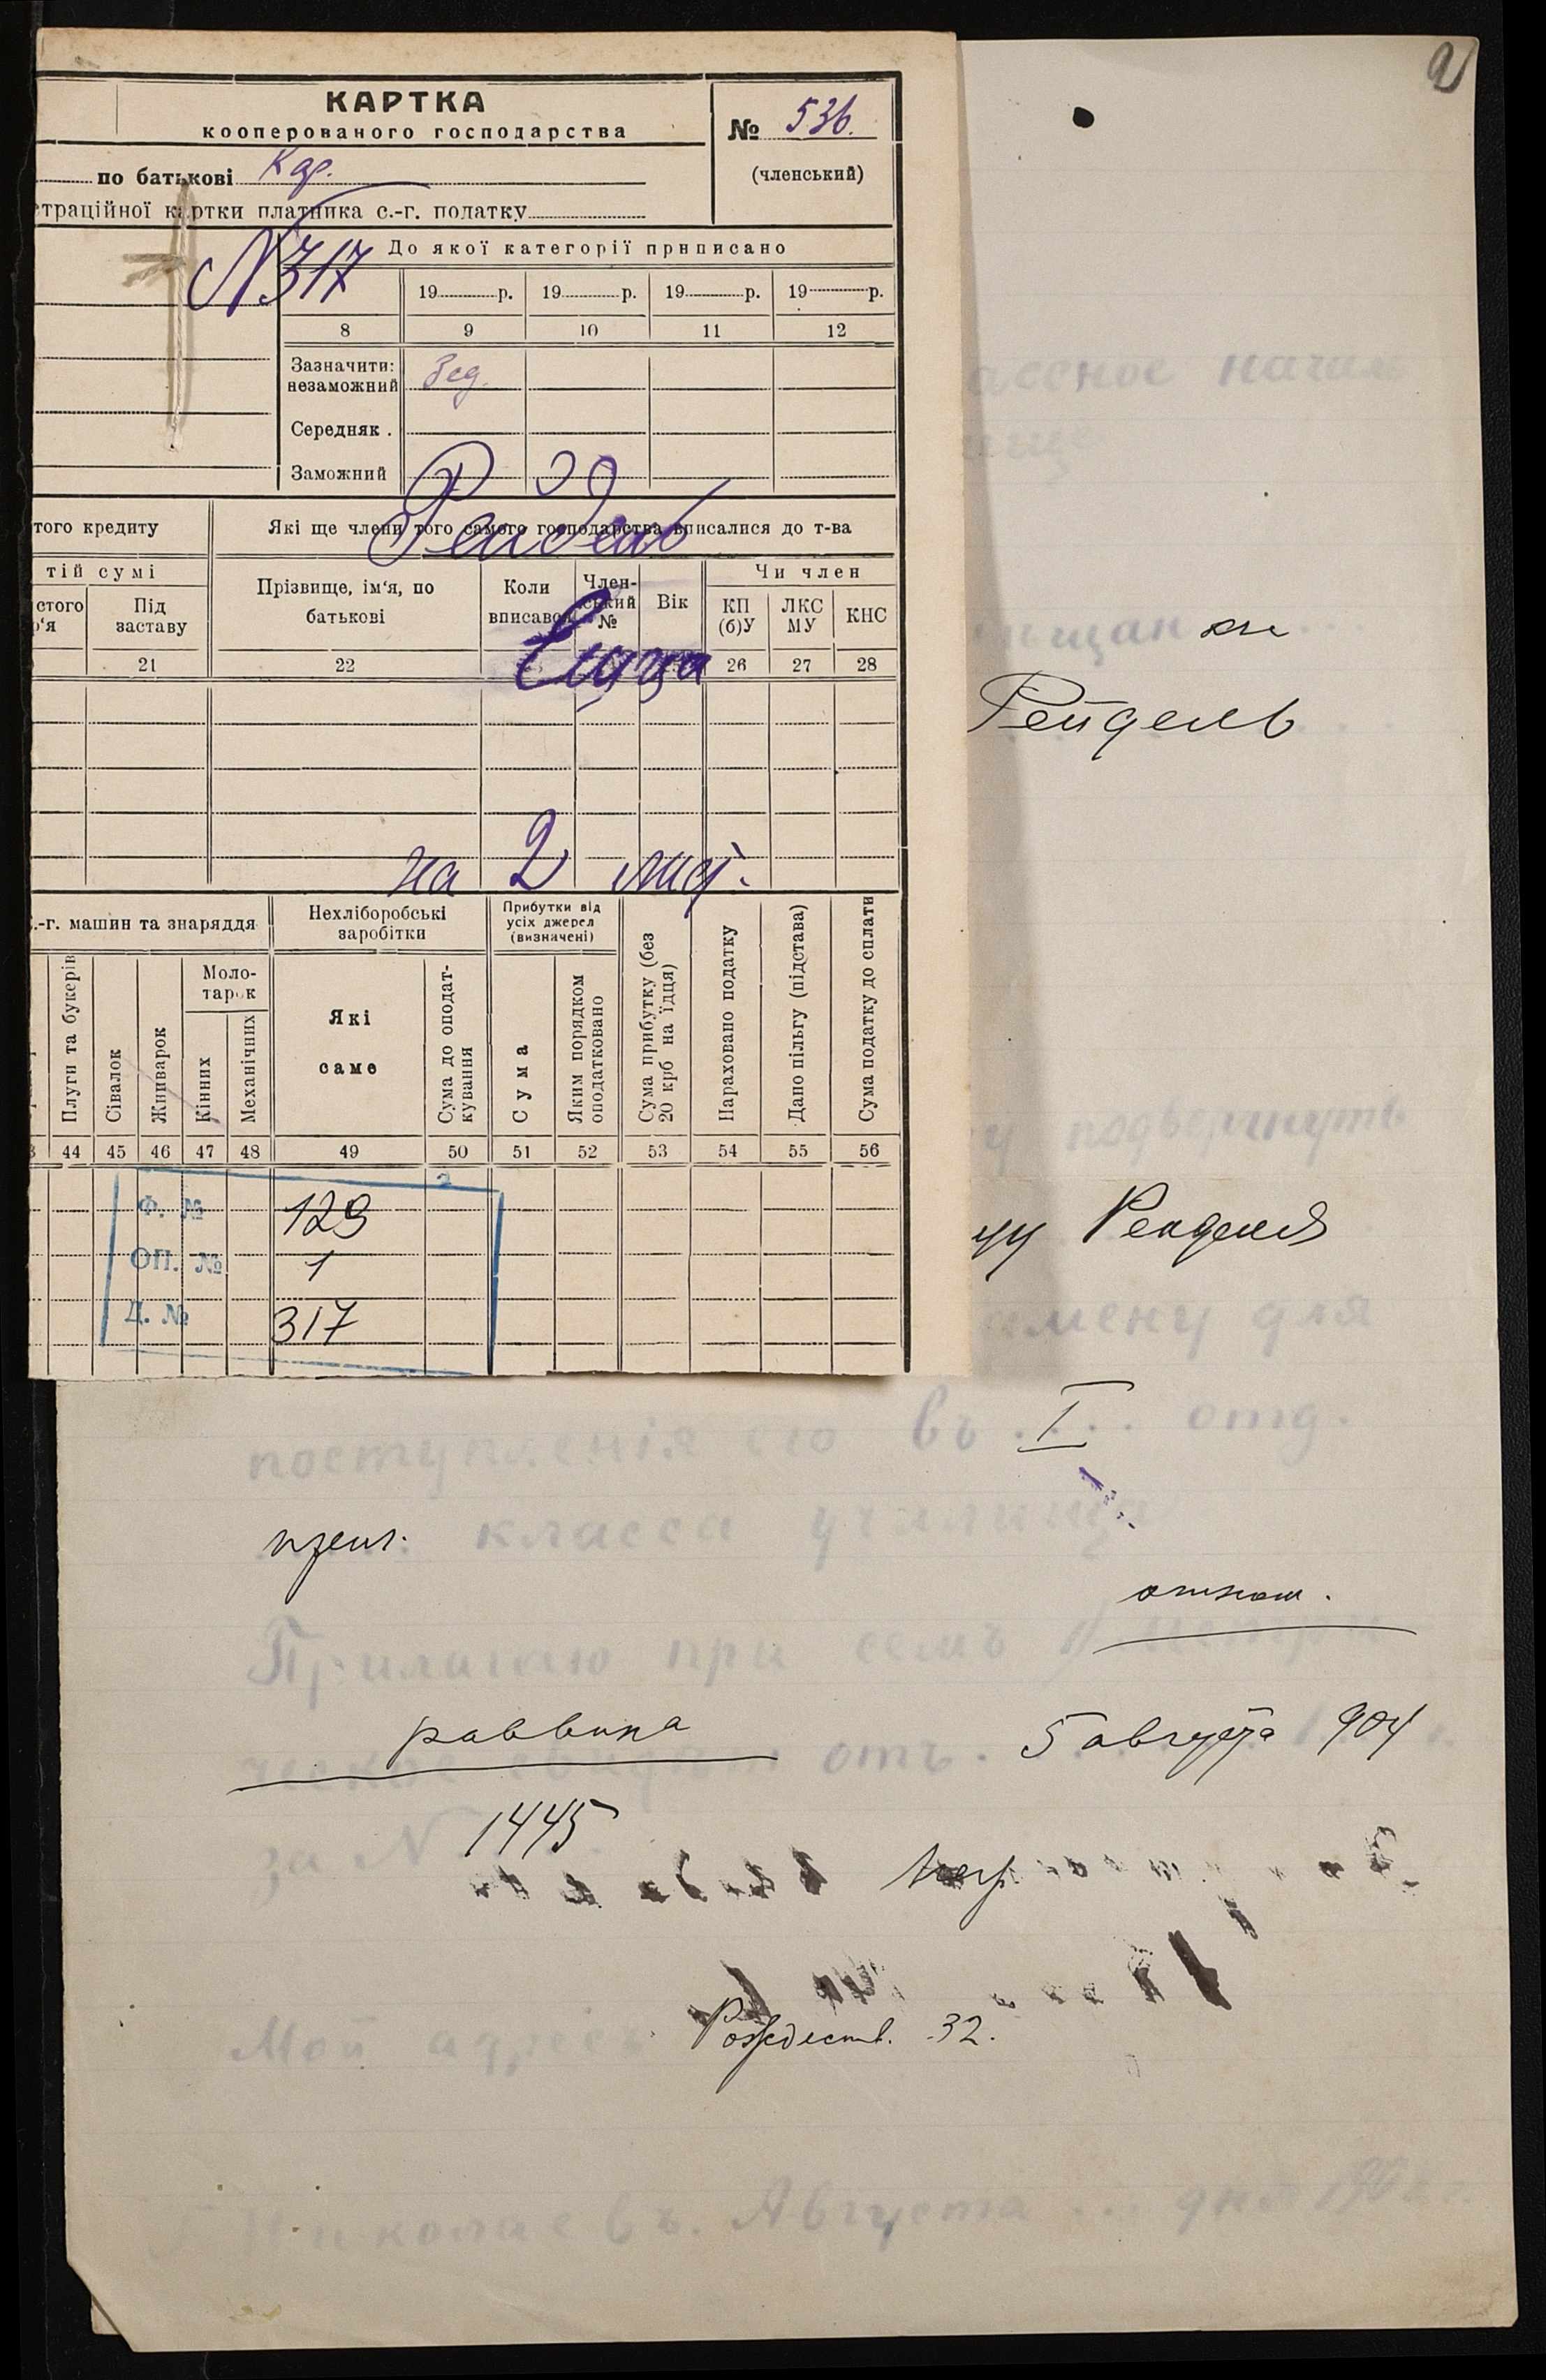 КАРТКА
кооперованого господарства
№ 536.
(членський)
по батькові Кар.
страційної картки платника с.-г. податку
N317
До якої категорії приписано
19 р. 19 р. 19 р. 19 р.
8 9 10 11 12
Зазначити:
незаможний
Середняк .
Заможний
того кредиту
Які ще члени того самого господарства вписалися до т-ва
тій сумі
Прізвище, ім'я, по
батькові
Коли
вписався
Член-
ський
№
Вік
Чи член
стого
р'я
Під
заставу
КП
(б)У
ЛКС
МУ
КНС
21 22 26 27 28
на 2 лист.
.-г. машин та знаряддя
Нехліборобські
заробітки
Прибутки від
усіх джерел
(визначені)
Плуги та букерів
Сівалок
Жниварок
Моло-
тарок
Кінних
Механічних
Які
саме
Сума до оподат-
кування
Сума
Яким порядком
оподатковано
Сума прибутку (без
20 крб на їдця)
Нараховано податку
Дано пільгу (підстава)
Сума податку до сплати
3 44 45 46 47 48 49 50 51 52 53 54 55 56
Ф. № 129
ОП. № 1
Д. № 317
2
классное начал
мѣщан
Рейдель
у подвергнуть
Рейделя
экзамену для
поступленія его въ I отд.
класса училища
Прилагаю при семъ 1) метри
раввина
отъ. 5 августа 904
за N 1445
Мой адресъ Рождеств. 32.
Николаевъ. Августа ... дня 190